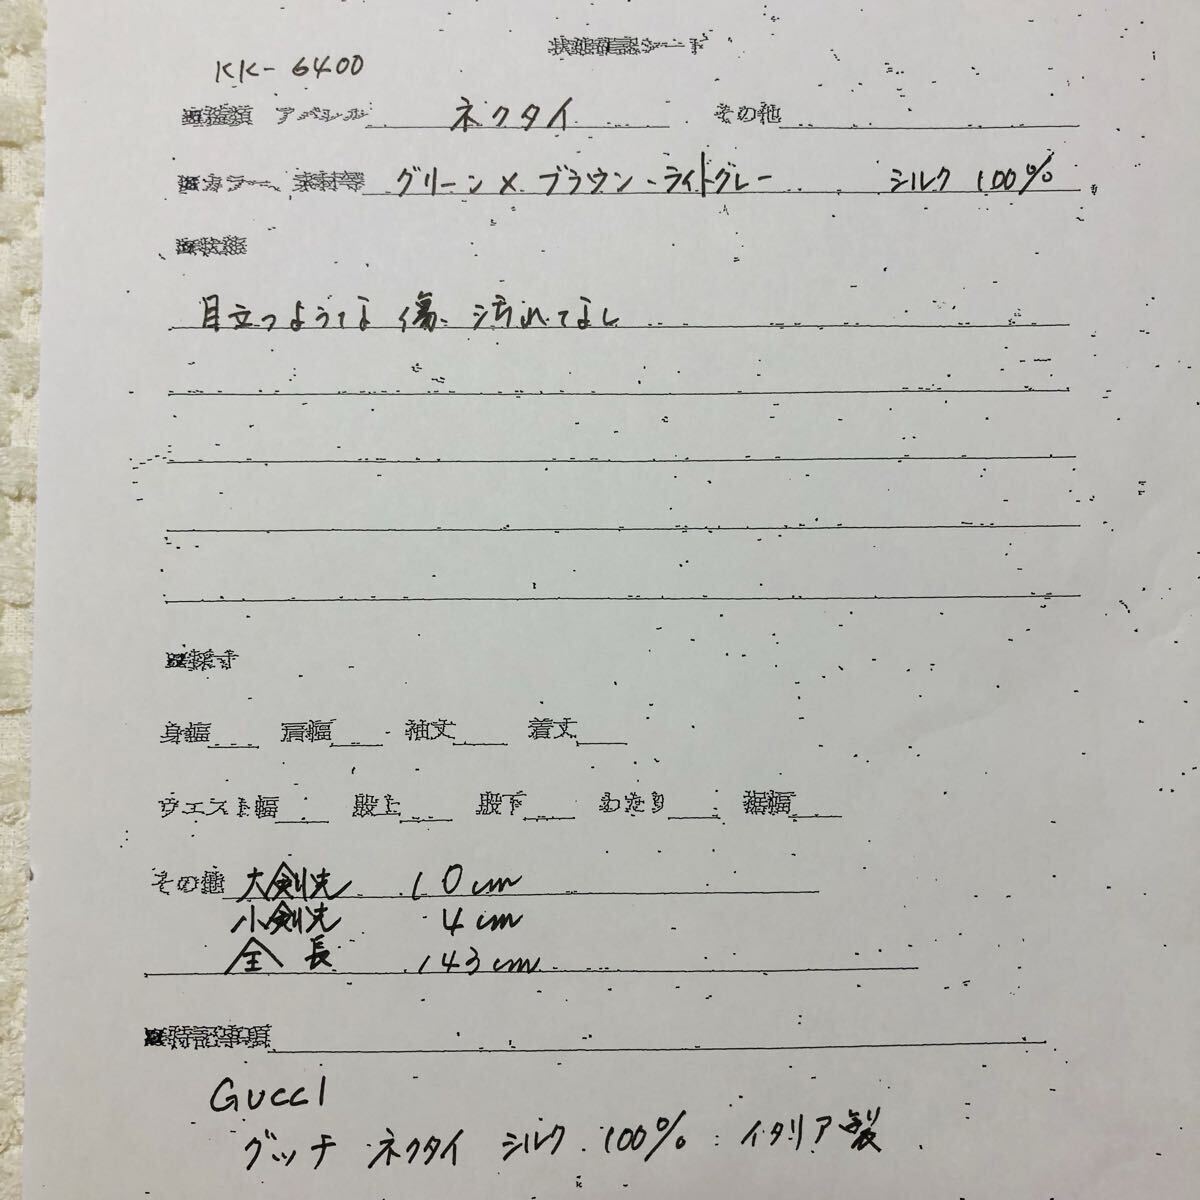 状態確認シート
KK-6400
■種類 アパレル ネクタイ その他
■カラー、素材等 グリーン×ブラウン・ライトグレー シルク 100%
■状態
目立つような 傷、汚れてなし
■採寸
身幅 肩幅 袖丈 着丈
ウエスト幅 股上 股下 わたり 裾幅
その他 大剣先 10cm
小剣先 4cm
全長 143cm
■特記事項
GUCCI
グッチ ネクタイ シルク 100% イタリア製